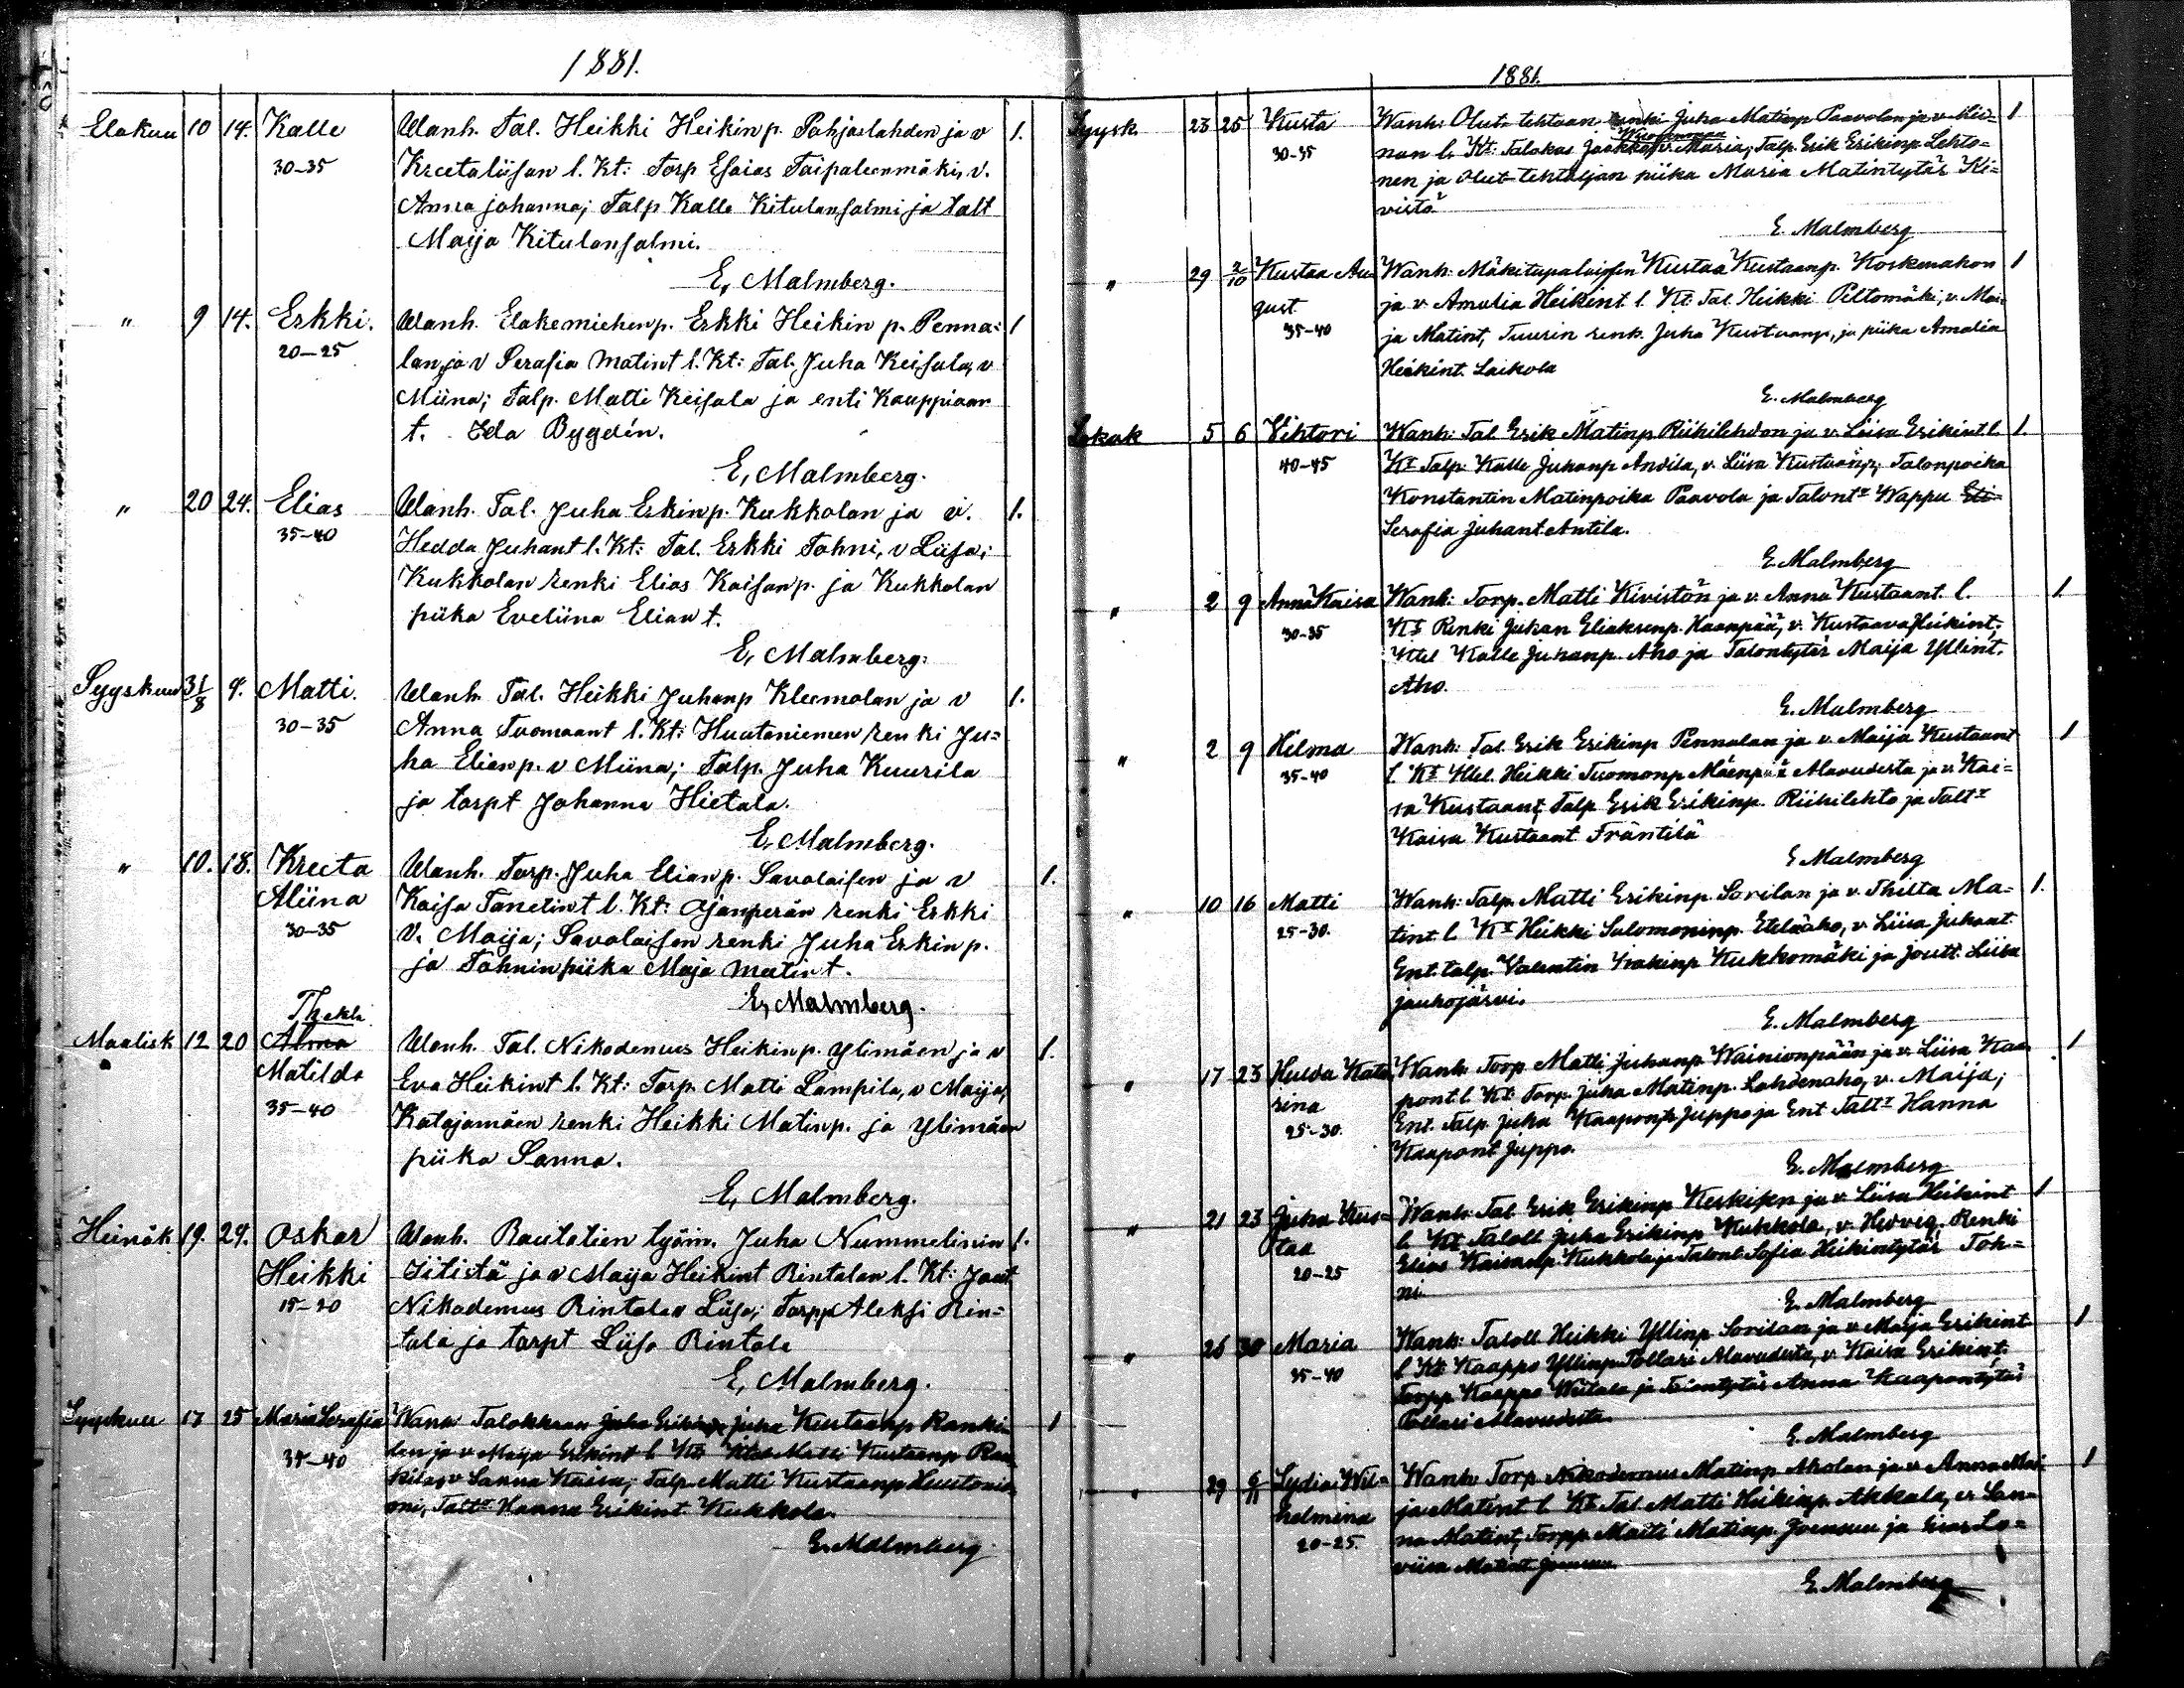 1881.
Elokuu 10 14. Kalle Wanh. Tal. Heikki Heikinp. Pohjoslahden ja v 1.
30-35 Kreetaliisan l. Kt: Torp Esaias Taipaleenmäki, v.
Anna Johanna; Talp Kalle Kitulansalmi ja talt
Maija Kitulansalmi.
E, Malmberg.
" 9 14. Erkki. Wanh. Elakemiehenp. Erkki Heikin p. Penna- 1
20-25 lan, ja v Serafia Matint l. Kt: Tal. Juha Keisala, v
Miina; Talp. Matti Keisala ja enti Kauppiaan
t. Ida Bygdén.
E, Malmberg.
" 20 24. Elias Wanh. Tal. Juha Erkinp. Kukkolan ja v. 1.
35-40 Hedda Juhant l. Kt: Tal. Erkki Tohni, v Liisa;
Kukkolan renki Elias Kaisanp. ja Kukkolan
piika Eveliina Elian t.
E, Malmberg.
Syyskuu 31/8 4. Matti. Wanh. Tal. Heikki Juhanp Kleemolan ja v 1.
30-35 Anna Tuomaant l. Kt: Huutoniemen renki Ju=
ha Elianp. v Miina; Talp. Juha Kuurila
ja torpt Johanna Hietala.
E, Malmberg.
" 10. 18. Kreeta Wanh. Torp. Juha Elianp. Savolaisen ja v 1.
Aliina Kaisa Tanelint l. Kt: Ojanperän renki Erkki
30-35 v. Maija; Savolaisen renki Juha Erkinp.
ja Tohninpiika Maja Matint.
Thekla E, Malmberg.
Maalisk 12 20 Alma Wanh. Tal. Nikodemus Heikinp. Ylimäen ja v 1.
Matilda Eva Heikint l. Kt: Torp. Matti Lampila, v Maija;
35-40 Katajamäen renki Heikki Matinp. ja Ylimäen
piika Sanna.
E, Malmberg.
Heinäk 19. 24. Oskar Wanh. Rautatien työm. Juha Nummelinin 1.
Heikki Iitistä ja v Maija Heikint Rintalan l. Kt: Jout
15-20 Nikodemus Rintala v Liisa; Torpp Aleksi Rin=
tala ja torpt Liisa Rintala
E, Malmberg.
Syyskuu 17 25 Maria Serafia Wanh Talokkaan Juha Erikinp Juha Kustaanp Ranki= 1
35-40 lan ja v Maija Erikint l Kt: Matti Kustaanp Ran
kila, v Sanna Kaisa; Talp. Matti Kustaanp Huutonie
mi, Talt Hanna Erikint Kukkola.
E. Malmberg
1881.
Syysk. 23 25 Kusta Wanh: Olut-tehtaan renki Juha Matinp Paavolan ja v. Mii= 1
30-35 nan l. Kt: Talokas Jaakko v. Maria; Talp. Erik Erikinp Lehto=
nen ja olut-tehtailijan piika Maria Matintytär Ki=
vistö
E. Malmberg
" 29 2/10 Kustaa Au Wanh: Mäkitupalaisen Kustaa Kustaanp. Koskenahon 1
gust ja v Amalia Heikint l. Kt: Tal. Heikki Peltomäki, v. Mai=
35-40 ja Matint, Tuurin renk. Juha Kustaanp, ja piika Amalia
Heikint. Laikola
E. Malmberg
Lokak 5 6 Vihtori Wanh: Tal Erik Matinp Riihilehdon ja v. Liisa Erikint l. 1.
40-45 Kt Talp. Kalle Juhanp Andila, v. Liisa Kustaanp; Talonpoika
Konstantin Matinpoika Paavola ja Talont Wappu Eli-
Serafia Juhant Antila.
E. Malmberg
" 2 9 Anna Kaisa Wanh: Torp. Matti Kivistön ja v. Anna Kustaant. l. 1
30-35 Kt Renki Juhan Eliaksenp. Haanpää, v. Kustaava Heikint;
Ittel Kalle Juhanp. Aho ja Talontytär Maija Yllint.
Aho.
E. Malmberg
" 2 9 Hilma Wanh: Tal. Erik Erikinp Pennalan ja v. Maija Kustaant 1
35-40 l. Kt Ittel. Heikki Tuomonp Mäenpää Alavudesta ja v. Kai=
sa Kustaant; Talp Erik Erikinp. Riihilehto ja Talt
Kaisa Kustaant Fräntilä
E Malmberg
" 10 16 Matti Wanh: Talp. Matti Erikinp. Sorilan ja v. Thilta Ma= 1.
25-30. tint l. Kt Heikki Salomoninp. Eteläaho, v. Liisa Juhant
Ent. talp. Valentin Iisakinp Kukkomäki ja Joutt. Liisa
Jauhojärvi.
E. Malmberg
" 17 23 Hulda Kata Wanh: Torp Matti Juhanp Wainionpään ja v. Liisa Kaa 1
rina pont l. Kt: Torp. Juha Matinp. Lahdenaho, v. Maija;
25-30. Ent. Talp. Juha Kaaponp. Juppo ja Ent Talt Hanna
Kaapont Juppo.
E. Malmberg
" 21 23 Juha Kus= Wanh: Tal Erik Erikinp Keskisen ja v. Liisa Heikint 1
taa l. Kt Taloll Juha Erikinp Kukkola, v. Hedvig. Renki
20-25 Elias Kaisanp. Kukkola ja Talont Sofia Heikintytär Toh=
ni.
E. Malmberg
" 26 30 Maria Wanh: Taloll Heikki Yllinp Sorilan ja v Maija Erikint 1
35-40 l Kt Kaappo Yllinp Tollari Alavudesta, v. Kaisa Erikint.
Torpp Kaappo Wiitala ja Talontytär Anna Kaapontytär
Tollari Alavudesta.
E. Malmberg
" 29 6/11 Lydia Wil= Wanh: Torp Nikodemus Matinp Aholan ja v. Anna Mai 1
helmina ja Matint l Kt Tal. Matti Heikinp. Akkala, v. San=
20-25. na Matint, Torpp. Matti Matinp. Joensuu ja Lo=
viisa Matint Joensuu
E. Malmberg